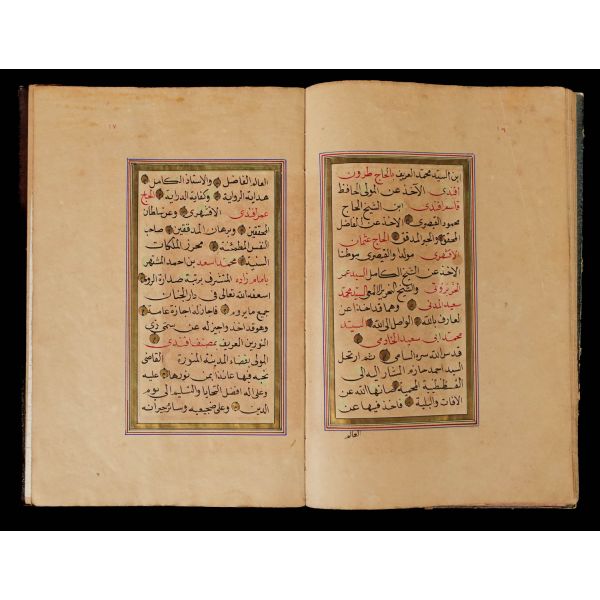 ١٦
ابن السيد محمد العريف بالحاج طرون
افندى الآخذ عن المولى الحافظ
قاسم افندى ابن الشيخ الحاج
محمود القيصرى الآخذ عن الفاضل
المحقق والحبر المدقق الحاج عثمان
الاقشهرى مولدا والقيصرى موطنا
الآخذ عن الشيخ الكامل السيد عمر
والشيخ العزيز السيد محمد
سعيد المدنى وهما قد اخذا عن
العارف بالله الواصل الى الله السيد
محمد ابى سعيد الخادمى
قدس الله سره السامى ثم ارتحل
السيد احمد حازم المشار اليه الى
القسطنطينية المحمية صانها الله عن
الآفات والبلية فاخذ فيها عن
العالم
١٧
العالم الفاضل والاستاذ الكامل
هداية الرواية وكفاية الدراية الحاج
عمر افندى الاقشهرى وعن سلطان
المحققين وبرهان المدققين صاحب
النفس المطمئنة محرز الملكات
السنية محمد اسعد بن احمد المشتهر
بامام زاده المتشرف برتبة صدارة الروم
اسعفه الله تعالى فى دار الجنان
جميع ما يروم فاجاز له اجازة عامة
وهو قد اخذ واجيز له عن سمى ذى
النورين العريف بمصنف افندى
المولى بقضاء المدينة المنورة القاضى
نحبه فيها عائذا بمن نورها عليه
وعلى اله افضل التحايا والتسليم الى يوم
الدين وعلى ضجيعيه وسائر جيرانه